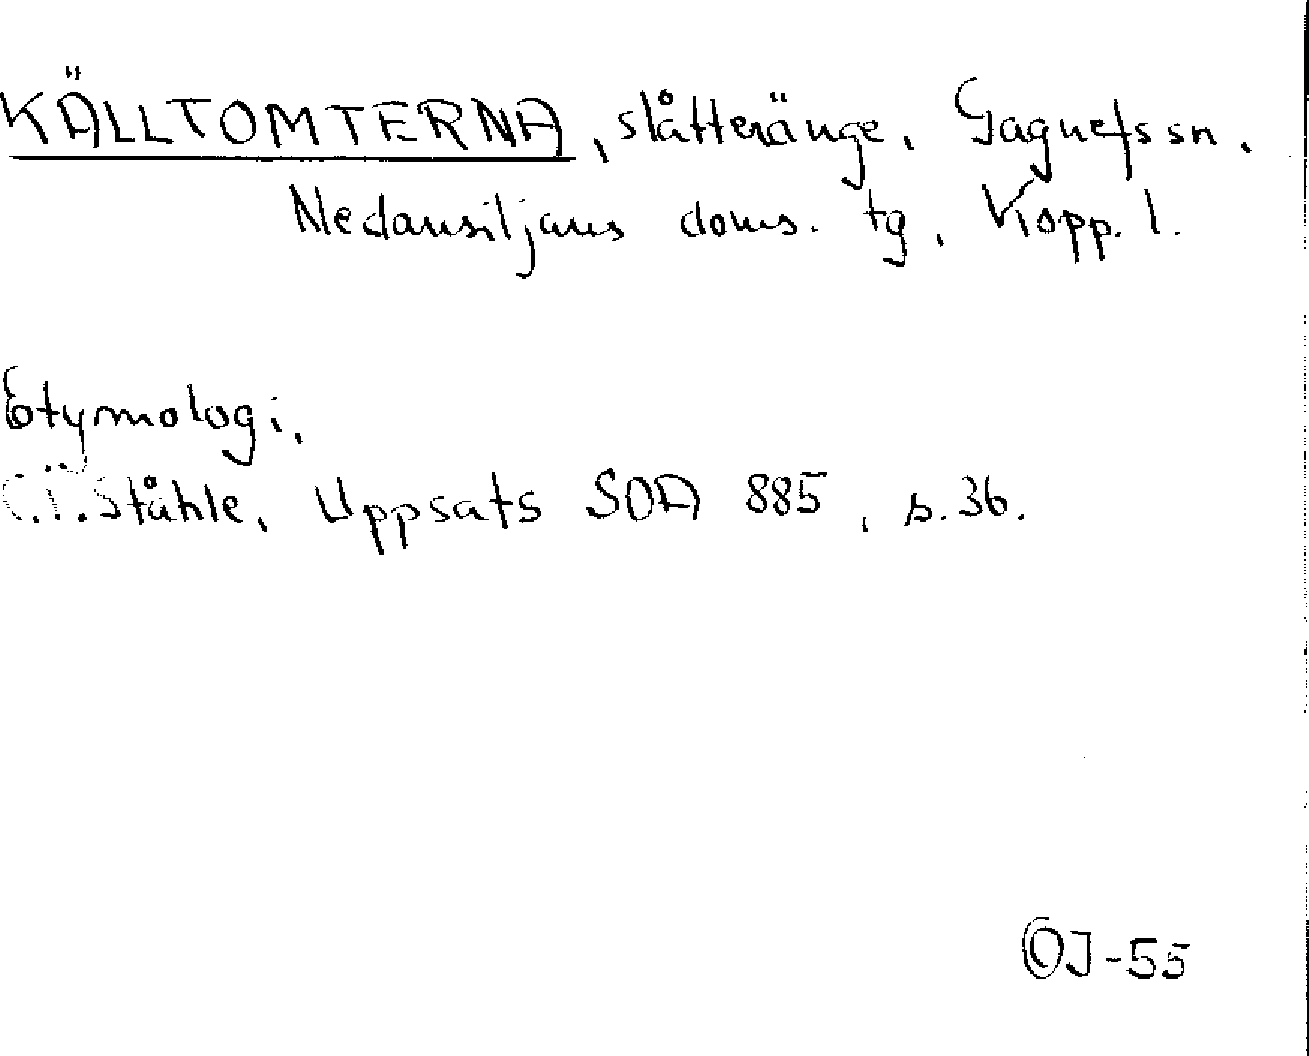 KÄLLTOMTERNA, slåtteränge. Gagnefs sn.
Nedansiljans doms. tg, Kopp. l.
Etymologi.
C.I. Ståhle, Uppsats SOA 885, s. 36.
OJ-55